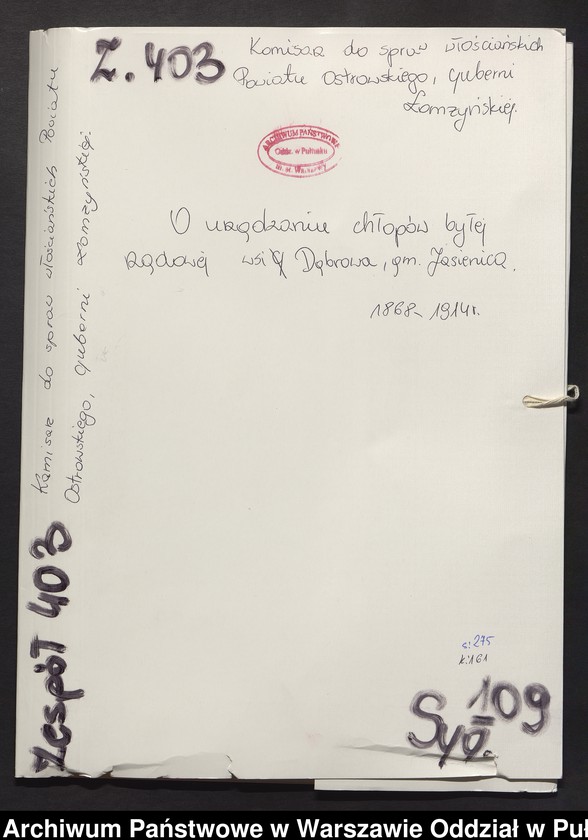 Z. 403
Komisarz do spraw włościańskich
Powiatu Ostrowskiego, Guberni
Łomżyńskiej.
ARCHIWUM PAŃSTWOWE
Oddz. w Pułtusku
m. st. Warszawy
O urządzaniu chłopów byłej
rządowej wsi Dąbrowa, gm. Jasienica.
1868-1914r.
s: 275
k: 161
Syg. 109
Zespół 403
Komisarz do spraw włościańskich Powiatu
Ostrowskiego, Guberni Łomżyńskiej.
Archiwum Państwowe w Warszawie Oddział w Puł